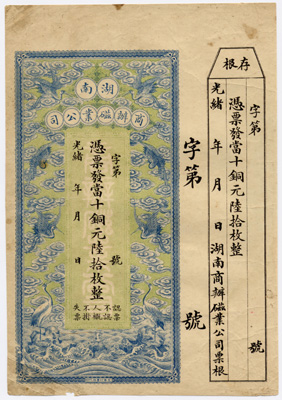 湖南
商辦磁業公司
字第 號
憑票發當十銅元陸拾枚整
光緒 年 月 日
認票不認人
不掛失票
字第 號
存根
字第 號
憑票發當十銅元陸拾枚整
光緒 年 月 日湖南商辦磁業公司票根